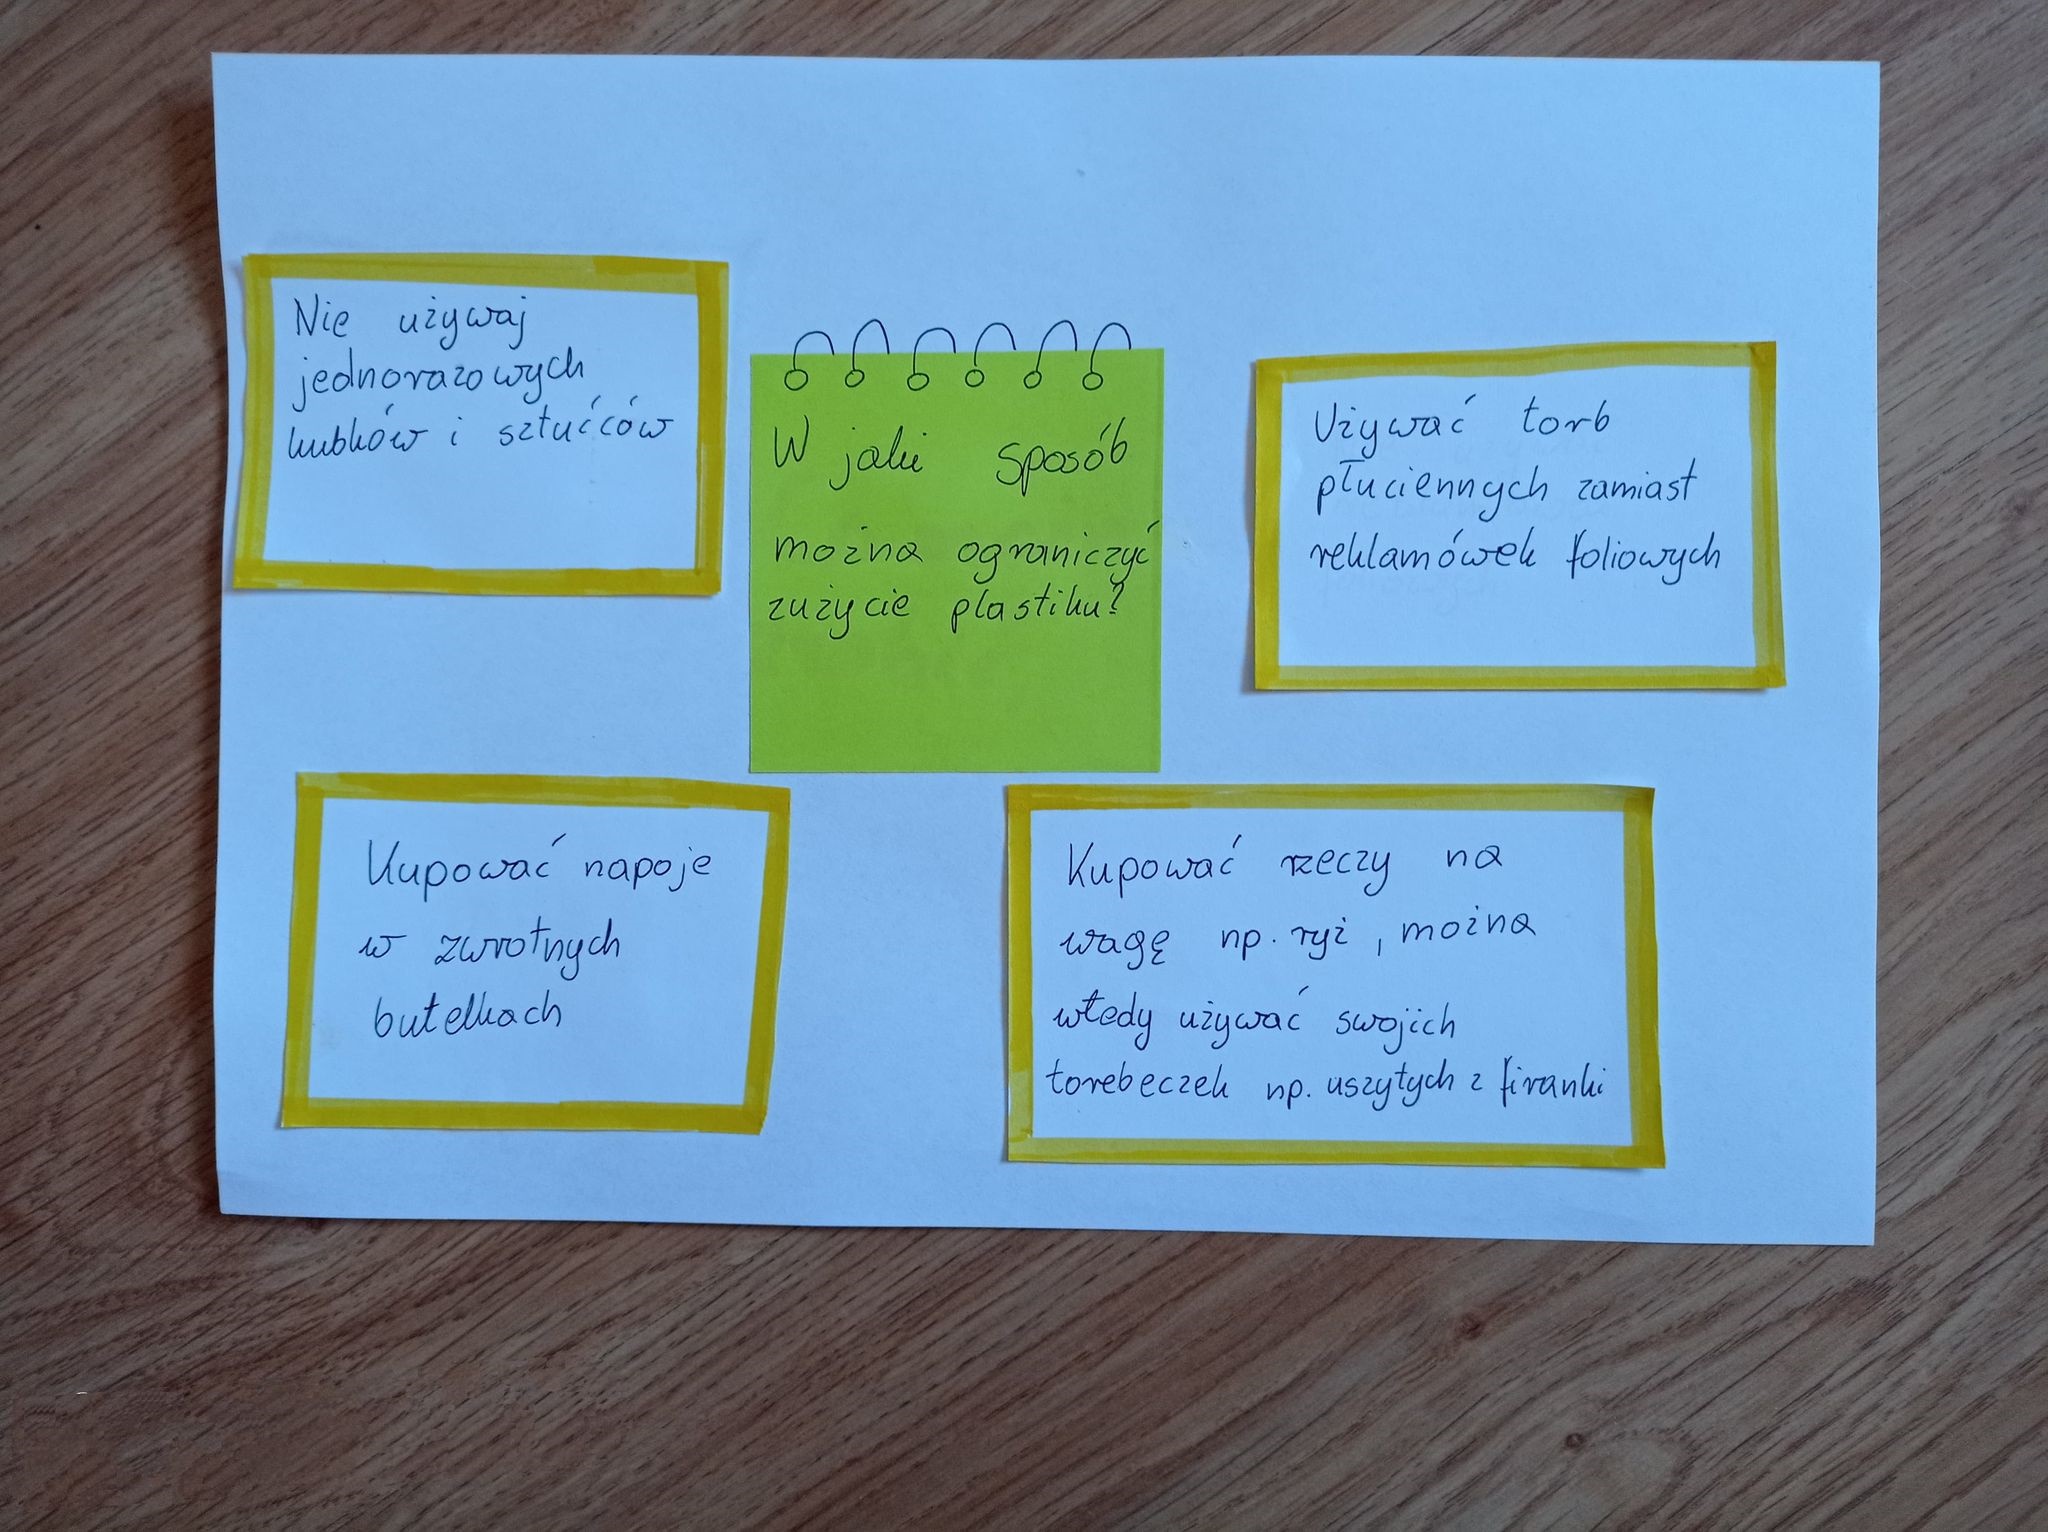 Nie używaj
jednorazowych
kubków i sztućców
W jaki sposób
można ograniczyć
zużycie plastiku?
Używać torb
płuciennych zamiast
reklamówek foliowych
Kupować napoje
w zwrotnych
butelkach
Kupować rzeczy na
wagę np. ryż, można
wtedy używać swojich
torebeczek np. uszytych z firanki